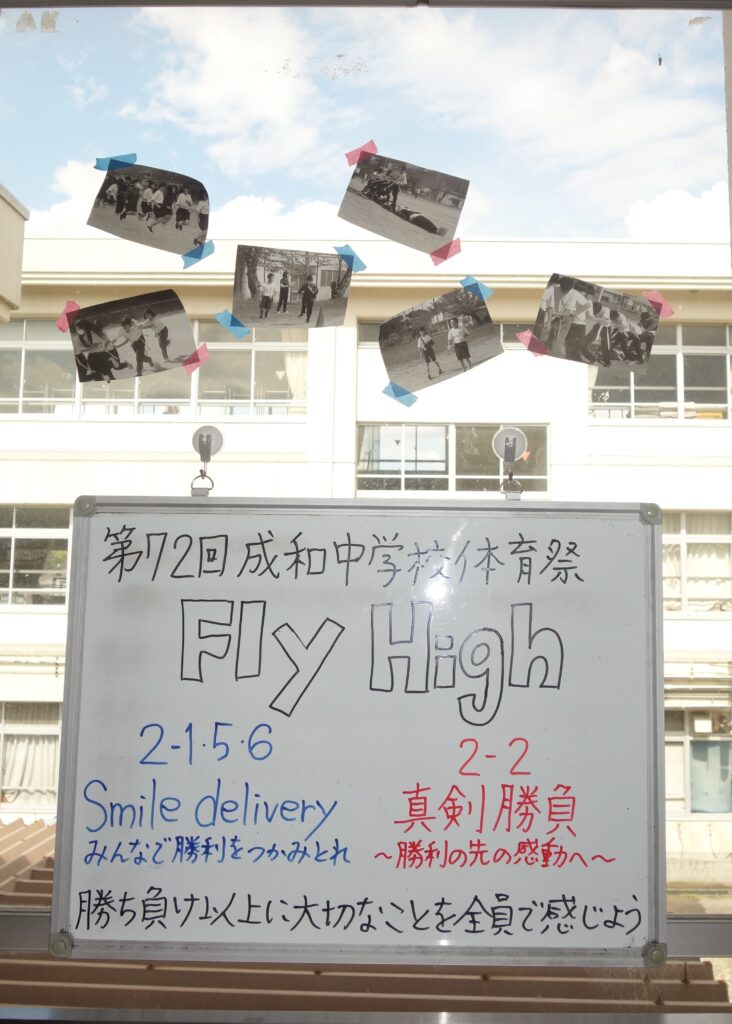 第72回成和中学校体育祭
Fly High
2-1·5·6
Smile delivery
みんなで勝利をつかみとれ
2-2
真剣勝負
～勝利の先の感動へ～
勝ち負け以上に大切なことを全員で感じよう